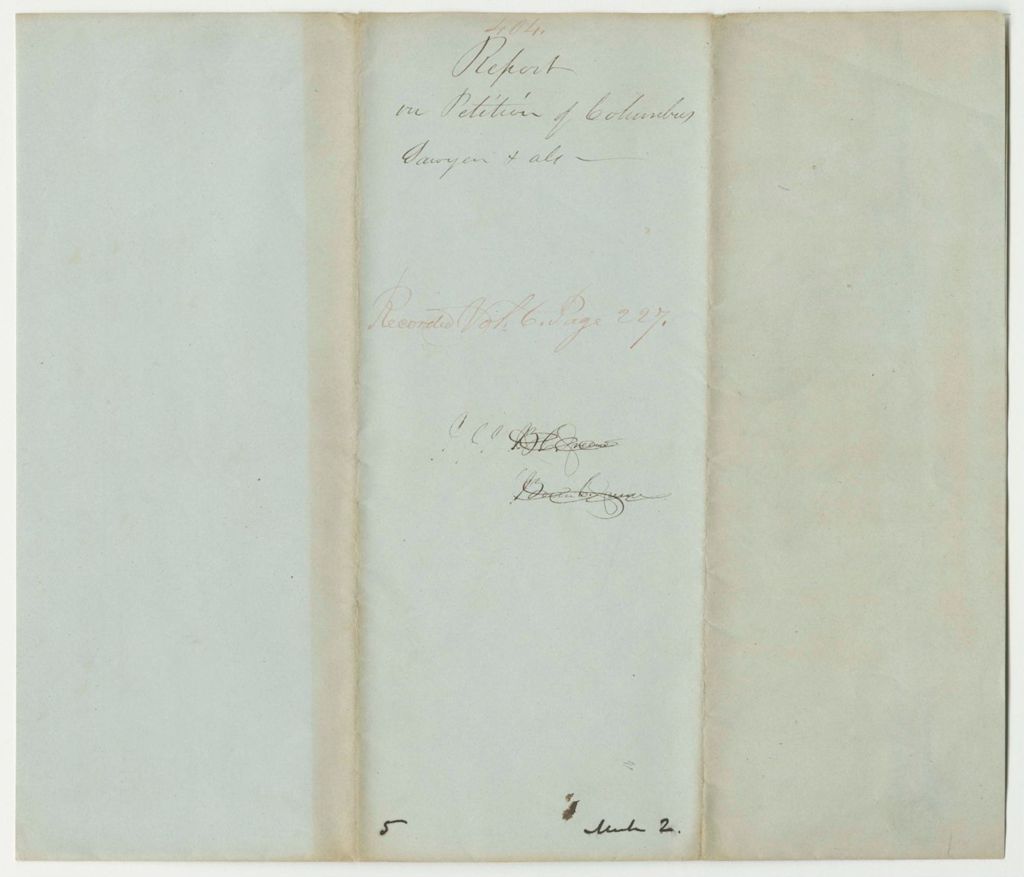 404.
Report
on Petition of Columbus
Sawyer & als —
Recorded Vol. 6. Page 227.
5
2.